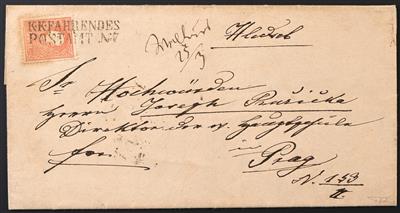 K:K:FAHRENDES
POSTAMT № 7
25/3
Sr Hochwürden
Herrn Joseph Ruzicka
Direktor der k. Hauptschule
in
Prag
N. 153
II